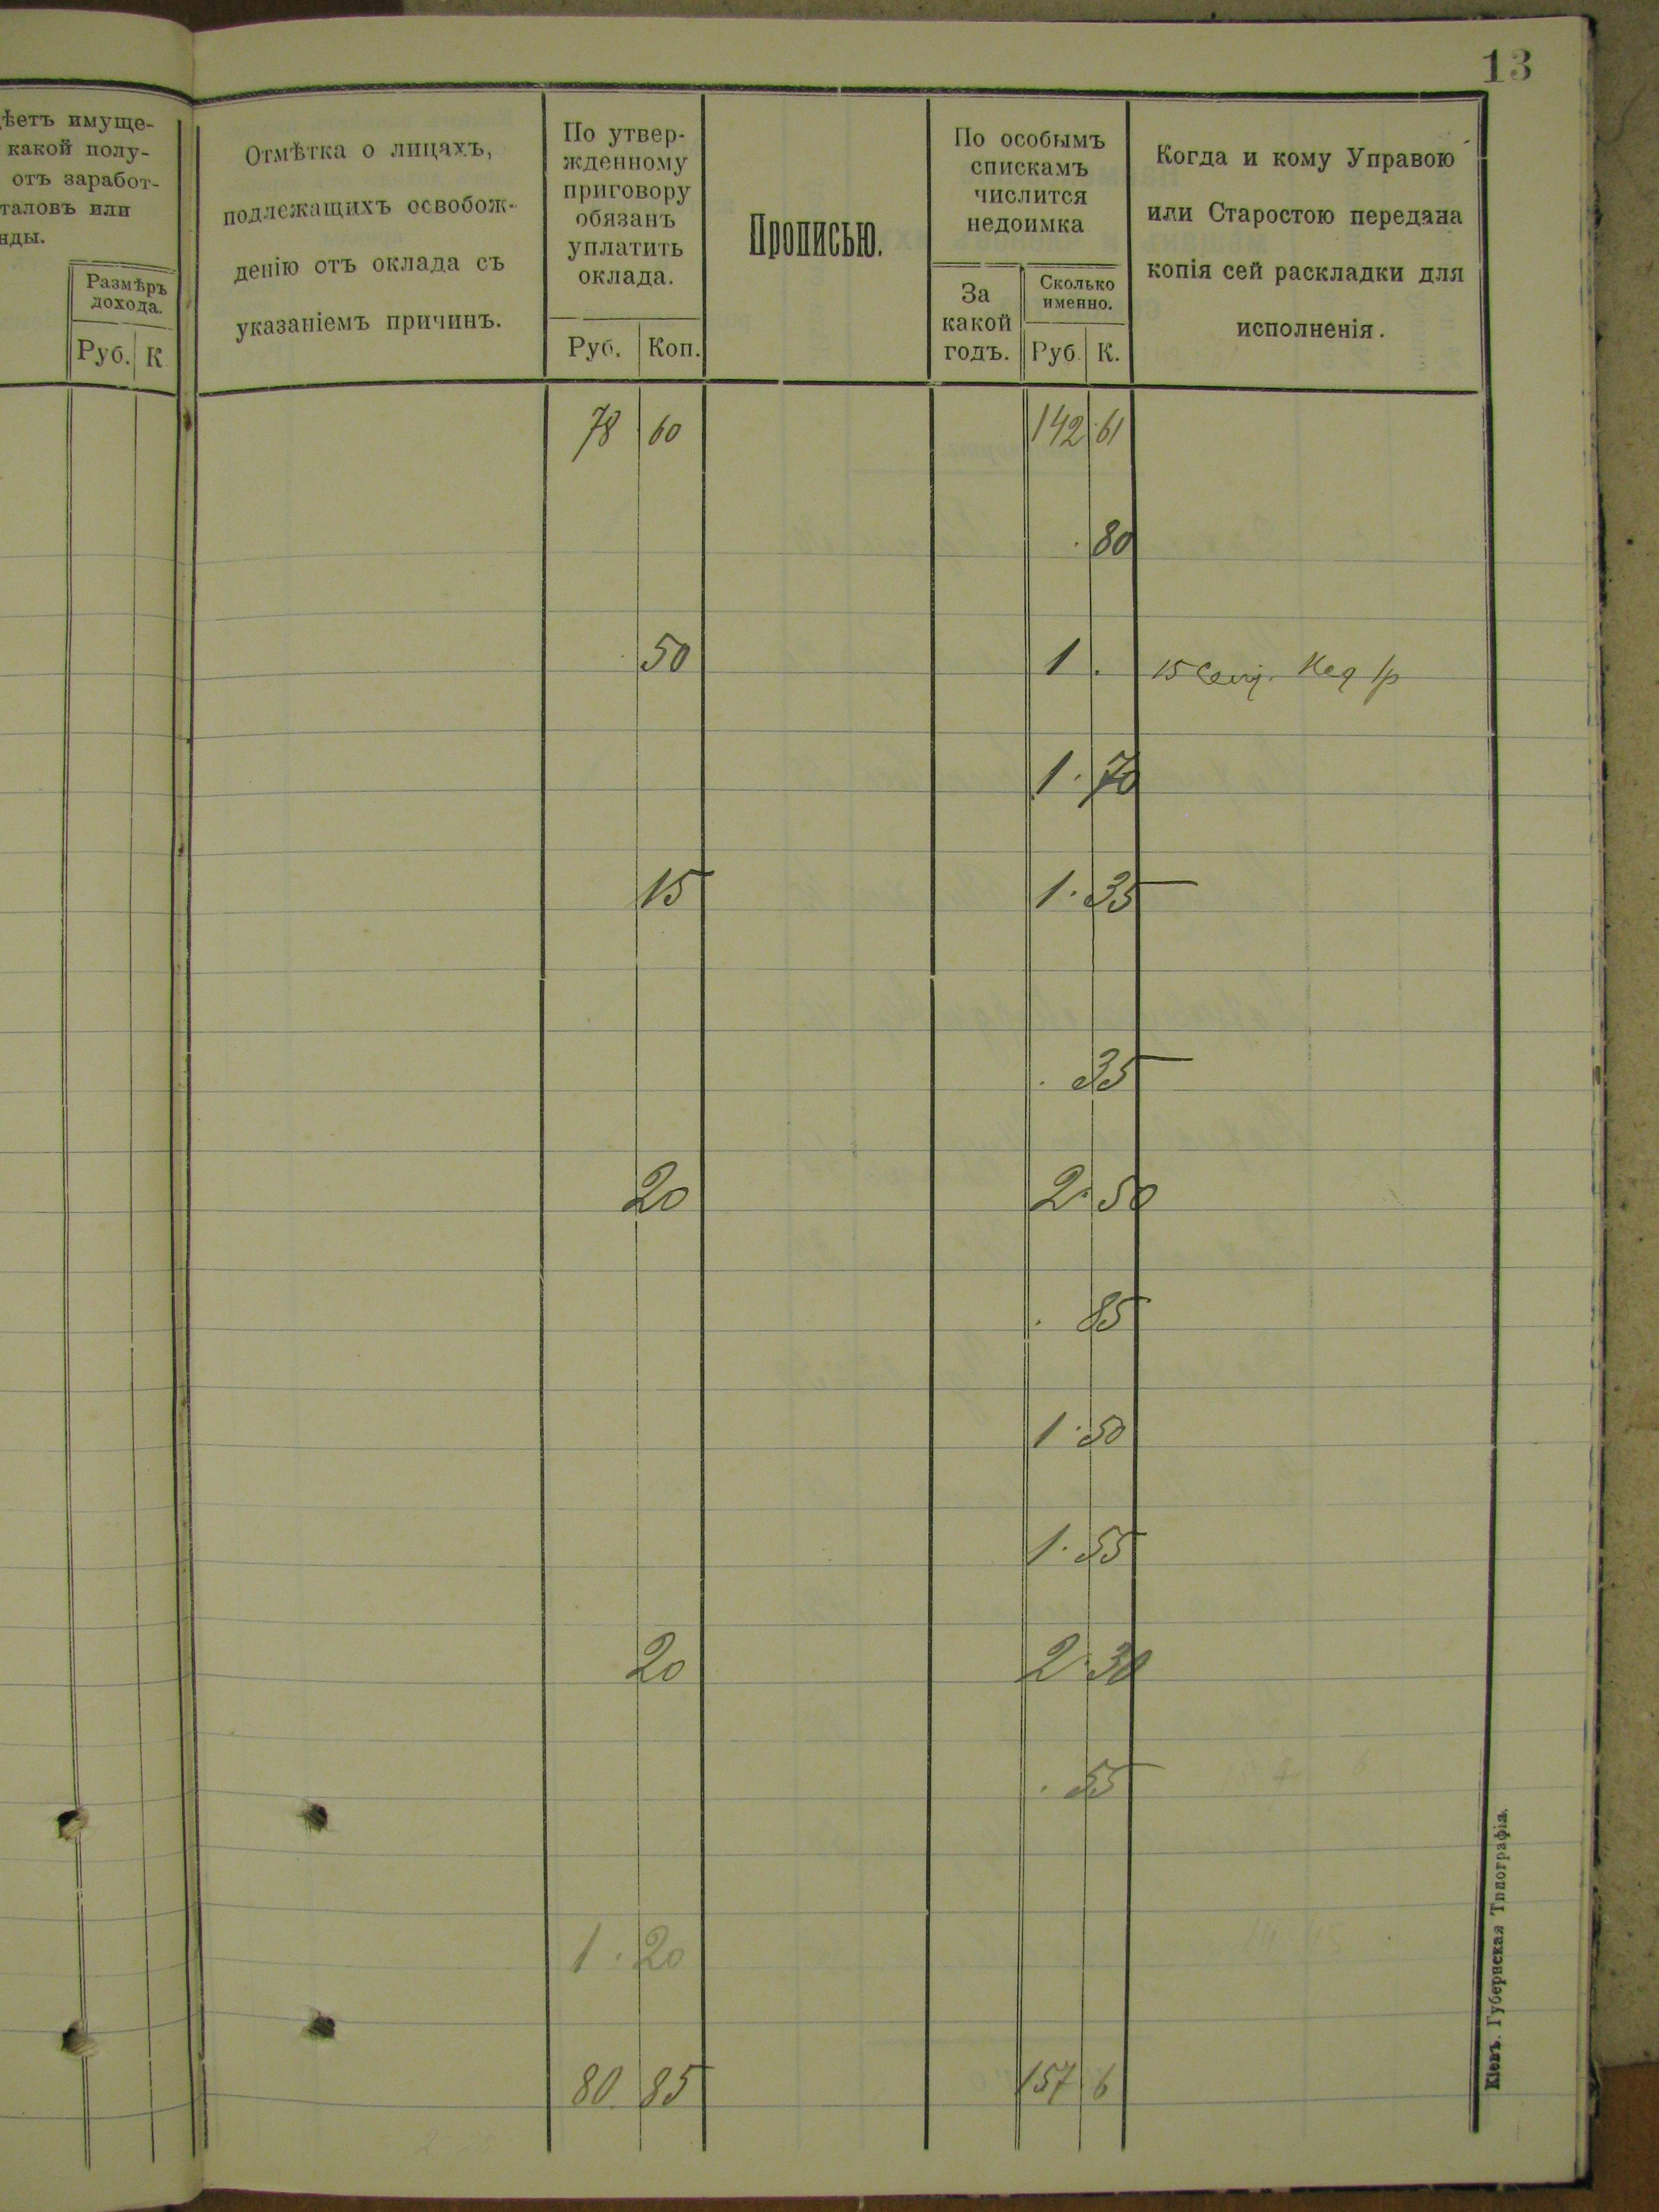 13
ѣетъ имуще-
какой полу-
отъ заработ-
таловъ или
нды.
Размѣръ
дохода.
Руб. К
Отмѣтка о лицахъ,
подлежащихъ освобож-
денію отъ оклада съ
указаніемъ причинъ.
По утвер-
жденному
приговору
обязанъ
уплатить
оклада.
Руб. Коп.
Прописью.
По особымъ
спискамъ
числится
недоимка
За
какой
годъ.
Сколько
именно.
Руб. К.
Когда и кому Управою
или Старостою передана
копія сей раскладки для
исполненія.
78 60 142 61
80
50 1 . 15
1 . 70
15 1 . 35
. 35
20 2 . 50
. 85
1 . 50
1 . 55
20 2 . 30
. 55
1 . 20
80 . 85 157 6
Кіевъ. Губернская Типографія.